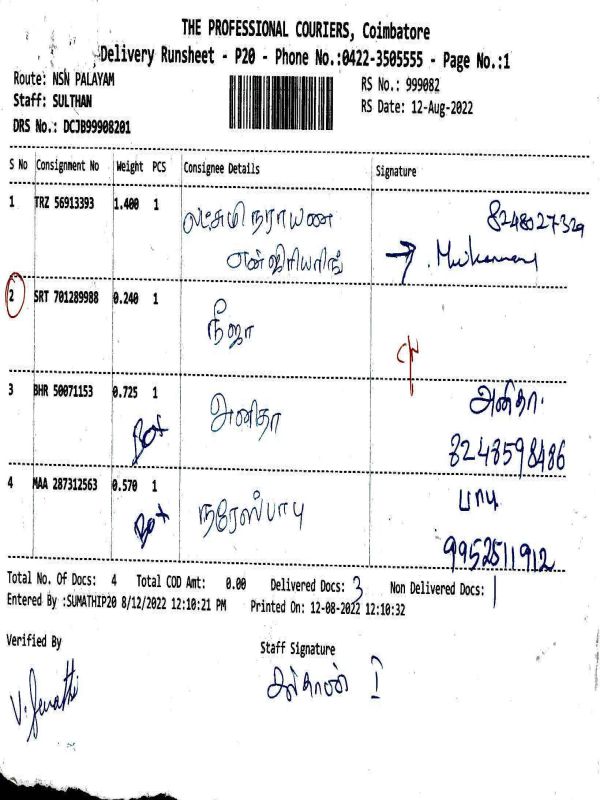 THE PROFESSIONAL COURIERS, Coimbatore
Delivery Runsheet - P20 - Phone No.:0422-3505555 - Page No.:1
Route: NSN PALAYAM RS No.: 999082
Staff: SULTHAN RS Date: 12-Aug-2022
DRS No.: DCJB99908201
S No Consignment No Weight PCS Consignee Details Signature
1 TRZ 56913393 1.400 1 லட்சுமி நராயண 8248027329
என்ஜினியரிங்
2 SRT 701289988 0.240 1 நீஜா
3 BHR 50071153 0.725 1 அனிதா அனிதா
Box 8248598486
4 MAA 287312563 0.570 1 நரேஸ்பாபு பாபு
Box 9952511912
Total No. Of Docs: 4 Total COD Amt: 0.00 Delivered Docs: 3 Non Delivered Docs: 1
Entered By :SUMATHIP20 8/12/2022 12:10:21 PM Printed On: 12-08-2022 12:10:32
Verified By Staff Signature